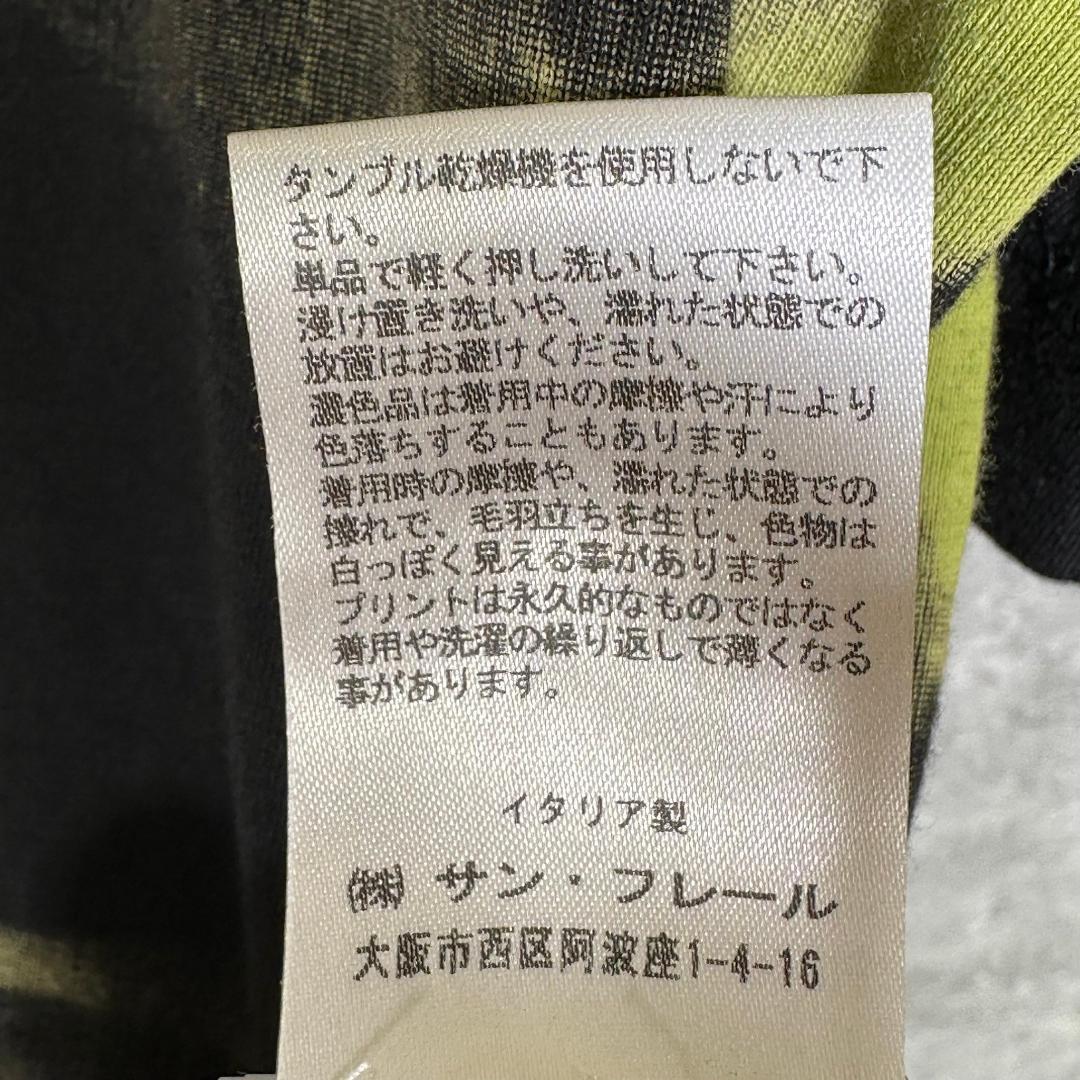 タンブル乾燥機を使用しないで下
さい。
単品で軽く押し洗いして下さい。
浸け置き洗いや、濡れた状態での
放置はお避けください。
濃色品は着用中の摩擦や汗により
色落ちすることもあります。
着用時の摩擦や、濡れた状態での
擦れで、毛羽立ちを生じ、色物は
白っぽく見える事があります。
プリントは永久的なものではなく
着用や洗濯の繰り返しで薄くなる
事があります。
イタリア製
㈱ サン・フレール
大阪市西区阿波座1-4-16